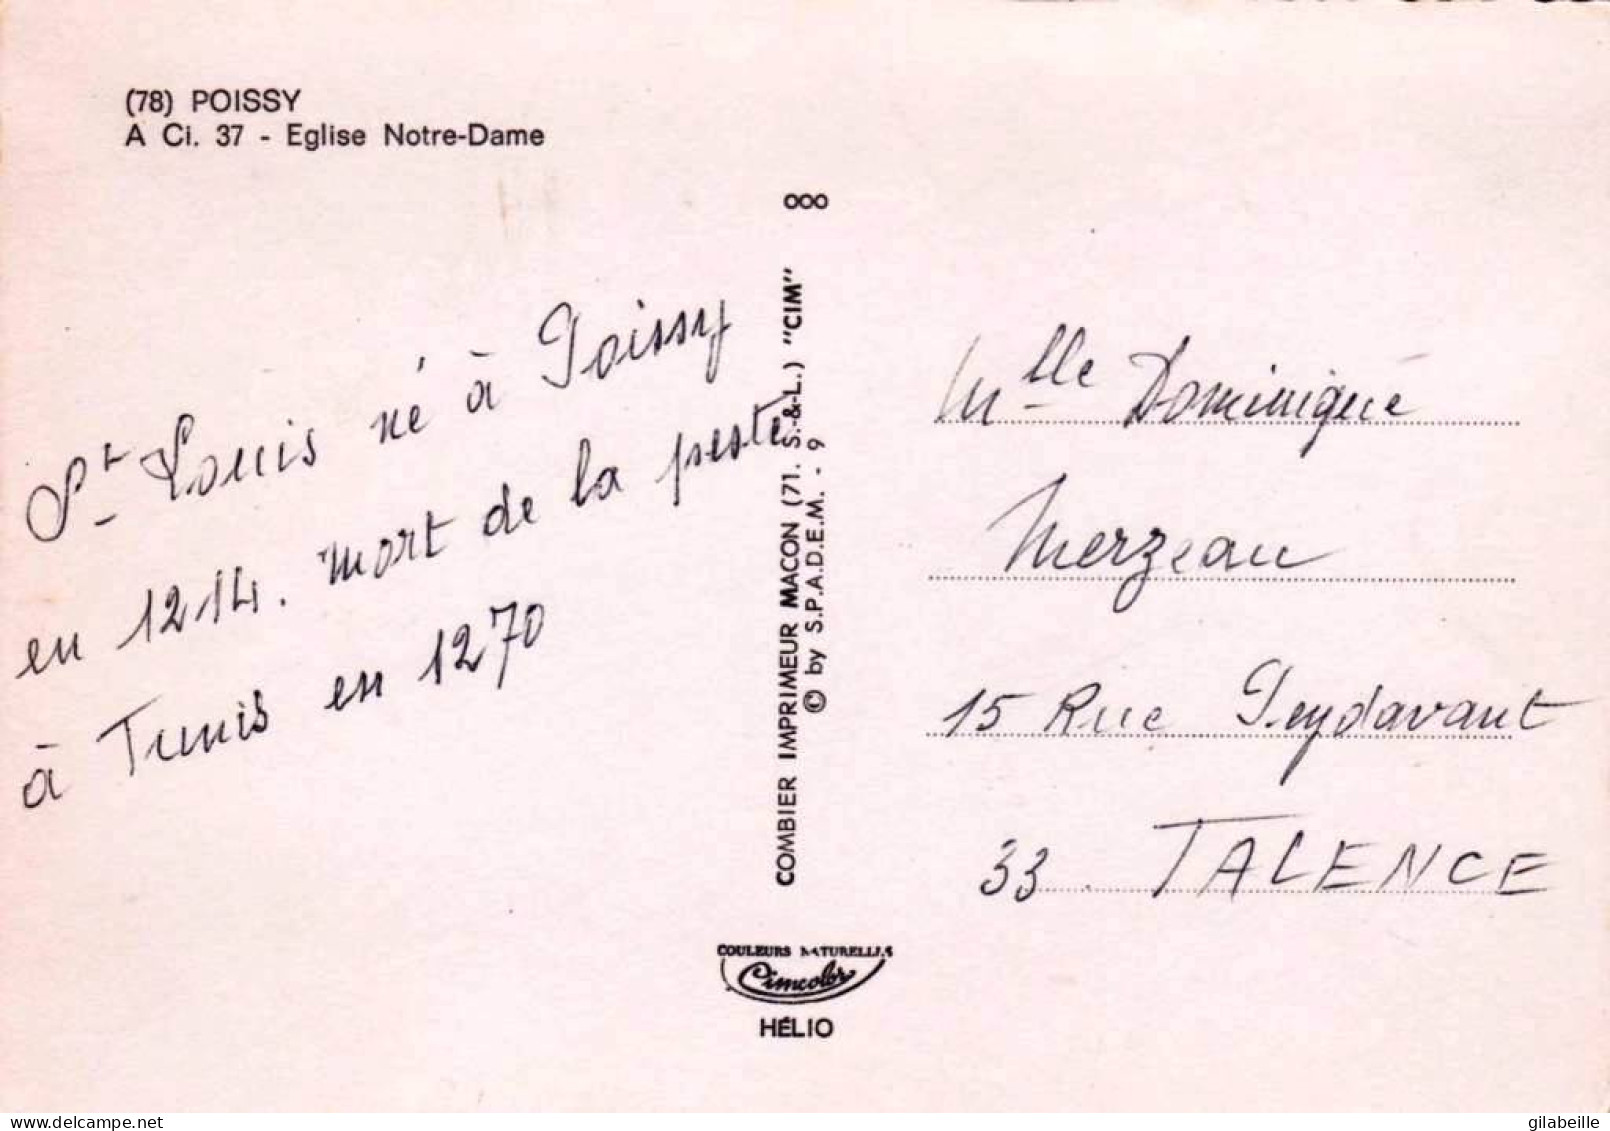 (78) POISSY
A Ci. 37 - Eglise Notre-Dame
St Louis né à Poissy
en 1214. Mort de la peste
à Tunis en 1270
COMBIER IMPRIMEUR MACON (71. S.-&-L.) "CIM"
© by S.P.A.D.E.M. - 9
COULEURS NATURELLES
Cimcolor
HÉLIO
Mlle Dominique
Merzeau
15 Rue Peydavant
33. TALENCE
www.delcampe.net
gilabeille